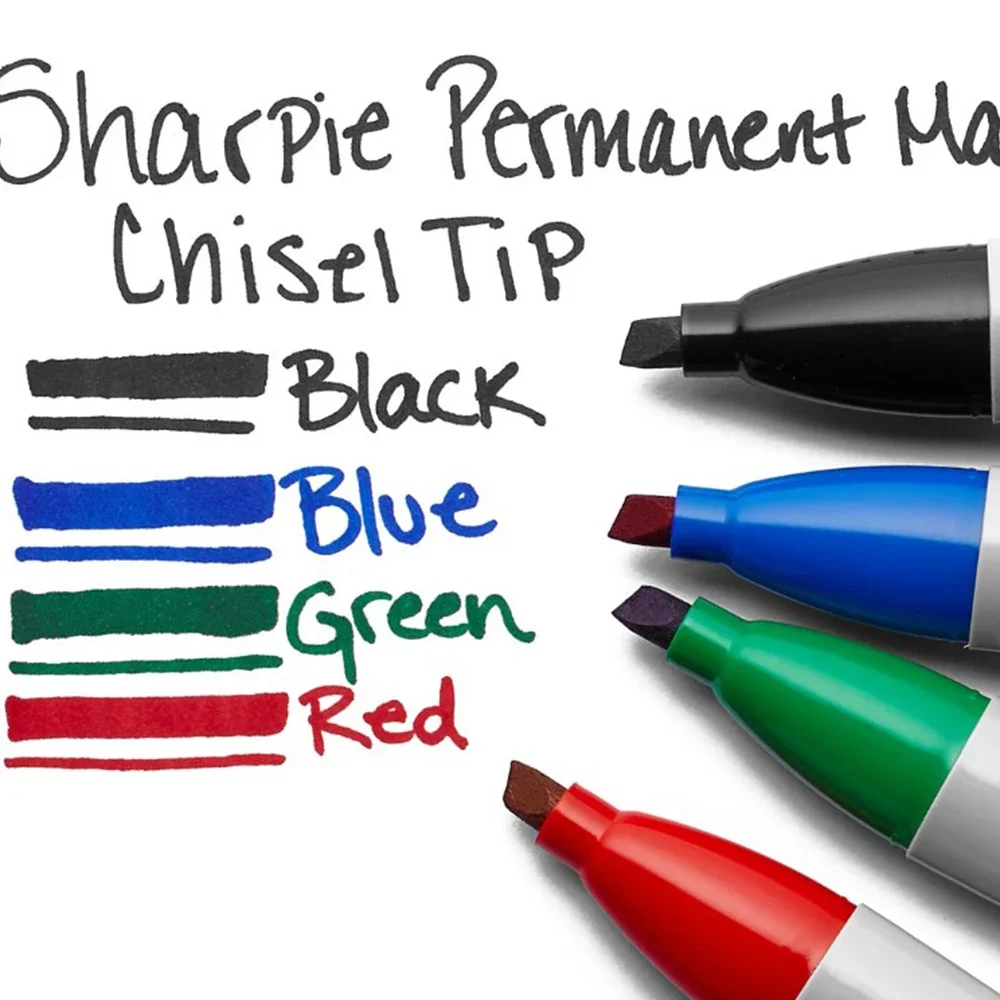 Sharpie Permanent Ma
Chisel Tip
Black
Blue
Green
Red